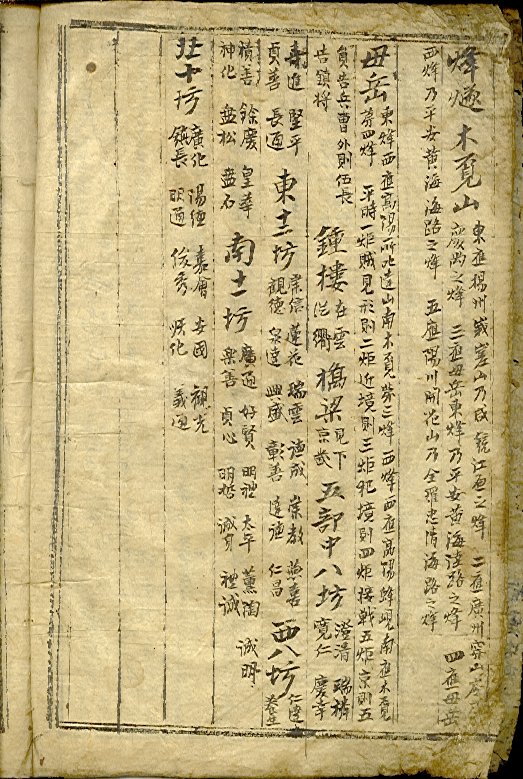 烽燧 木覓山
東應楊州峩嵯山乃咸鏡江原之烽 二應廣州穿山慶
尙之烽 三應毋岳東烽乃平安黃海陸路之烽 四應毋岳
西烽乃平安黃海海路之烽 五應陽川開花山乃全羅忠淸海路之烽
毋岳
東烽西應高陽所叱達山南木覓第三烽 西烽西應高陽蜂峴南應木覓
第四烽 平時一炬賊見形則二炬近境則三炬犯境則四炬接戰五炬京則五
員告兵曹外則伍長
告鎭將
鍾樓 在雲
從衢
橋梁 見下
京
五部中八坊
澄淸 瑞麟
寬仁 慶幸
壽進 堅平
貞善 長通
東十二坊
崇信 蓮花 瑞雲 德成 崇敎 燕喜
觀德 泉達 興盛 彰善 達德 仁昌
西八坊
仁達
養生
積善 餘慶 皇華
神化 盤松 盤石
南十一坊
廣通 好賢 明禮 太平 薰陶 誠明
樂善 貞心 明哲 誠身 禮誠
北十坊
廣化 陽德 嘉會 安國 觀光
鎭長 明通 俊秀 順化 義通